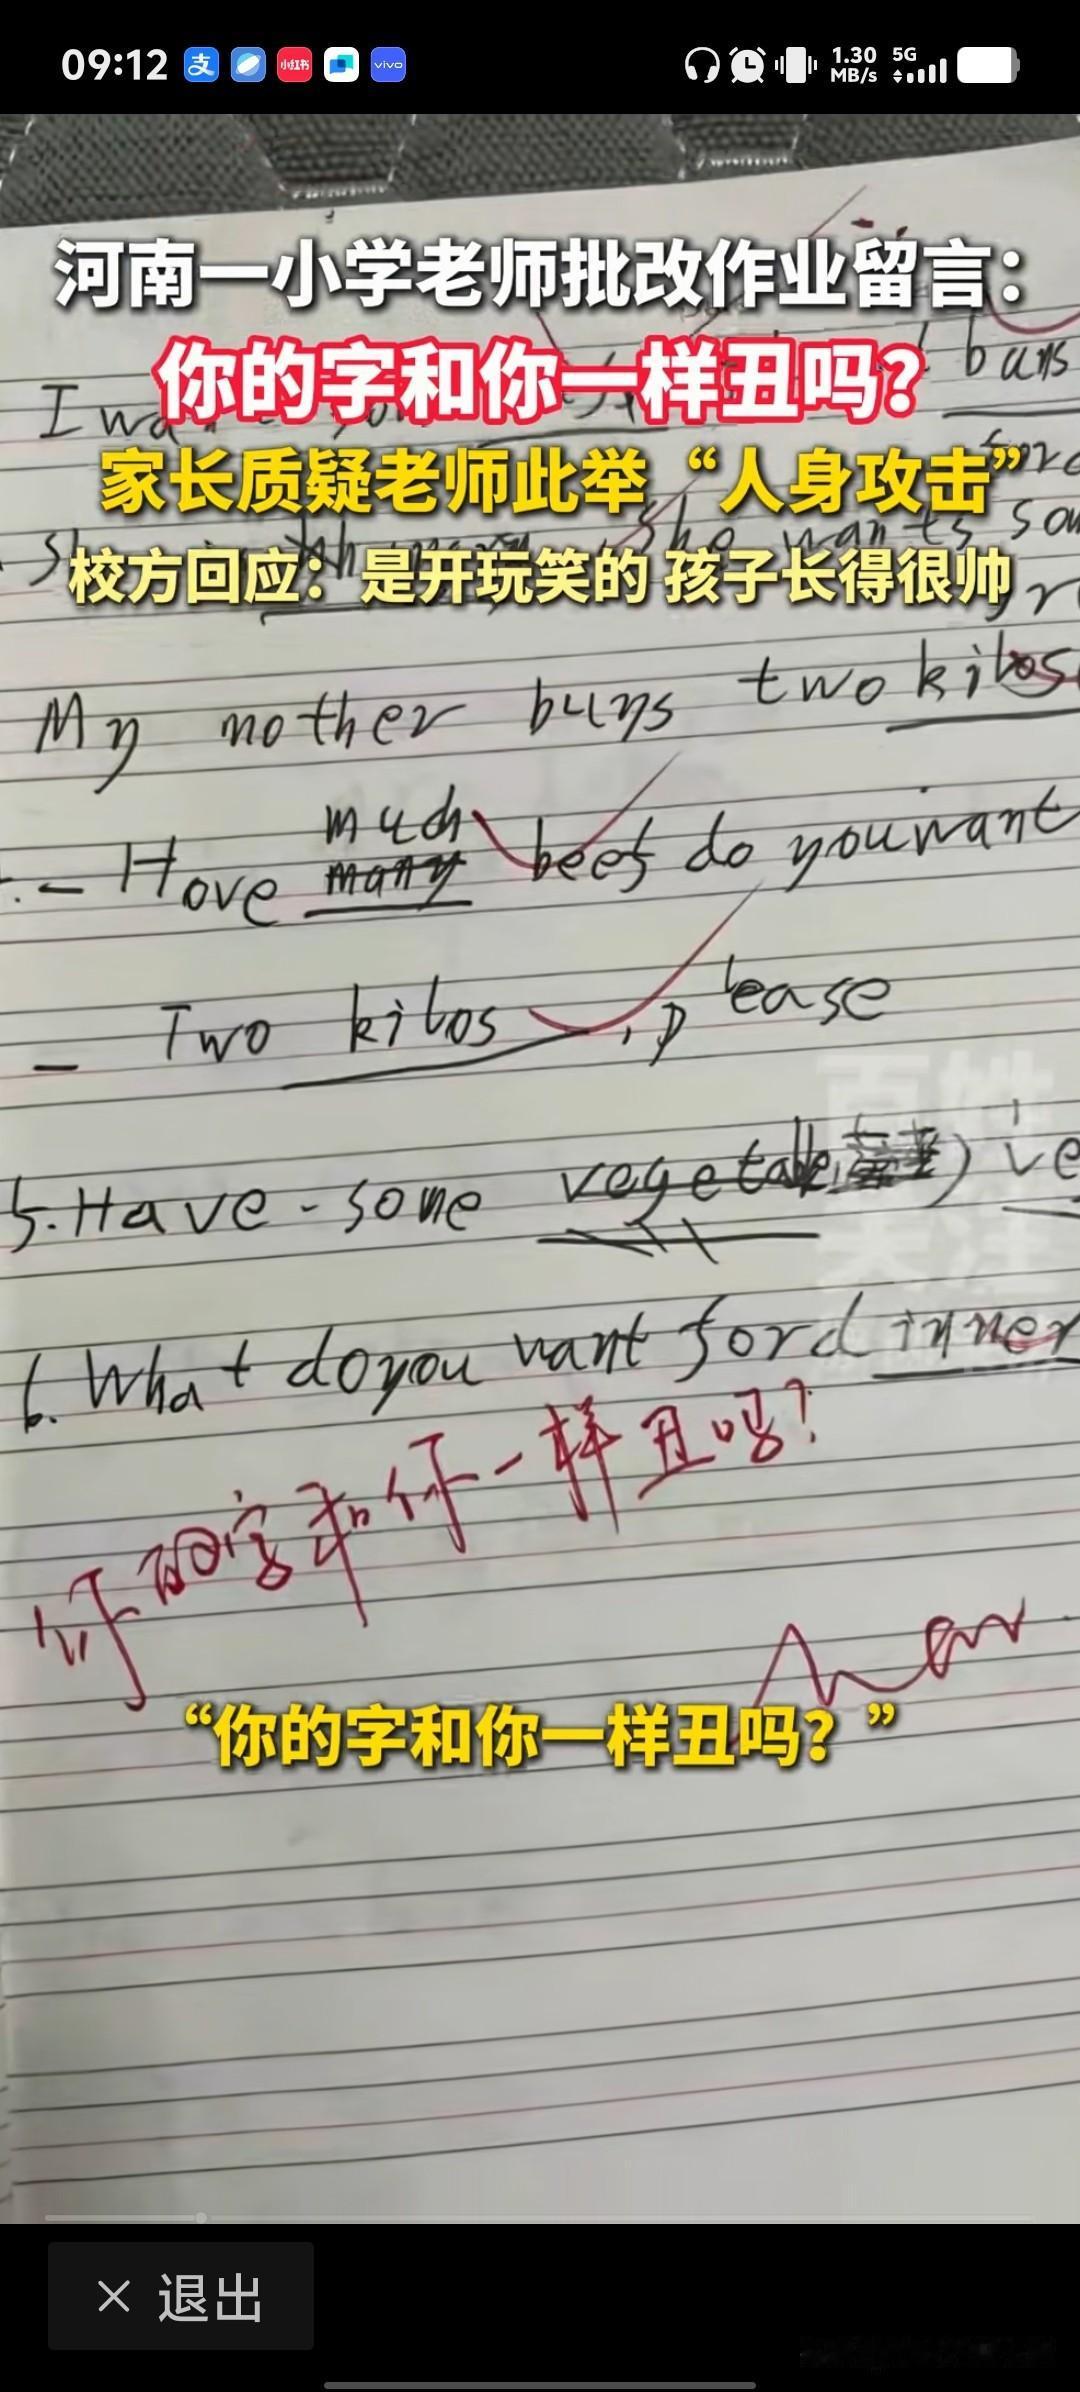 09:12
小红书
vivo
1.30
MB/s
5G
河南一小学老师批改作业留言：
你的字和你一样丑吗？
I wa
buns
家长质疑老师此举“人身攻击”
she wants
校方回应：是开玩笑的 孩子长得很帅
My mother buys two kilos
much
- Hove many beef do you want
- Two kilos , please
5. Have - some vegetable
6. What do you want for dinner
你的字和你一样丑吗?
“你的字和你一样丑吗？”
百姓
关注
× 退出